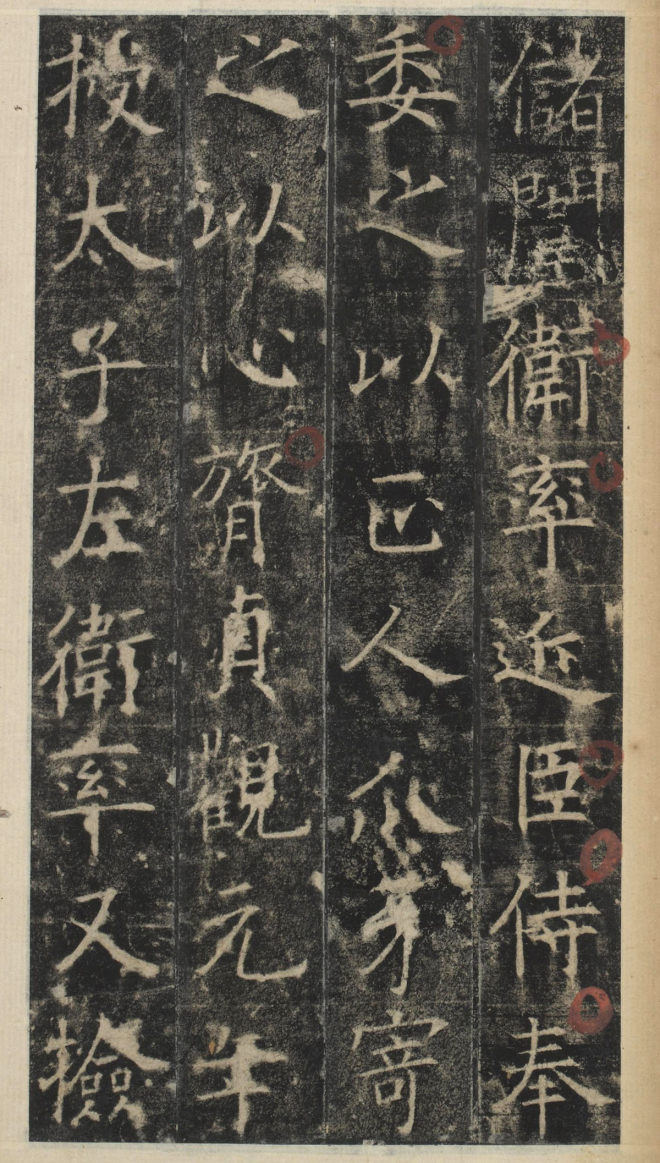 儲闈衛率近臣侍奉
委之以正人爪牙寄
之以心膂貞觀元年
授太子左衛率又檢